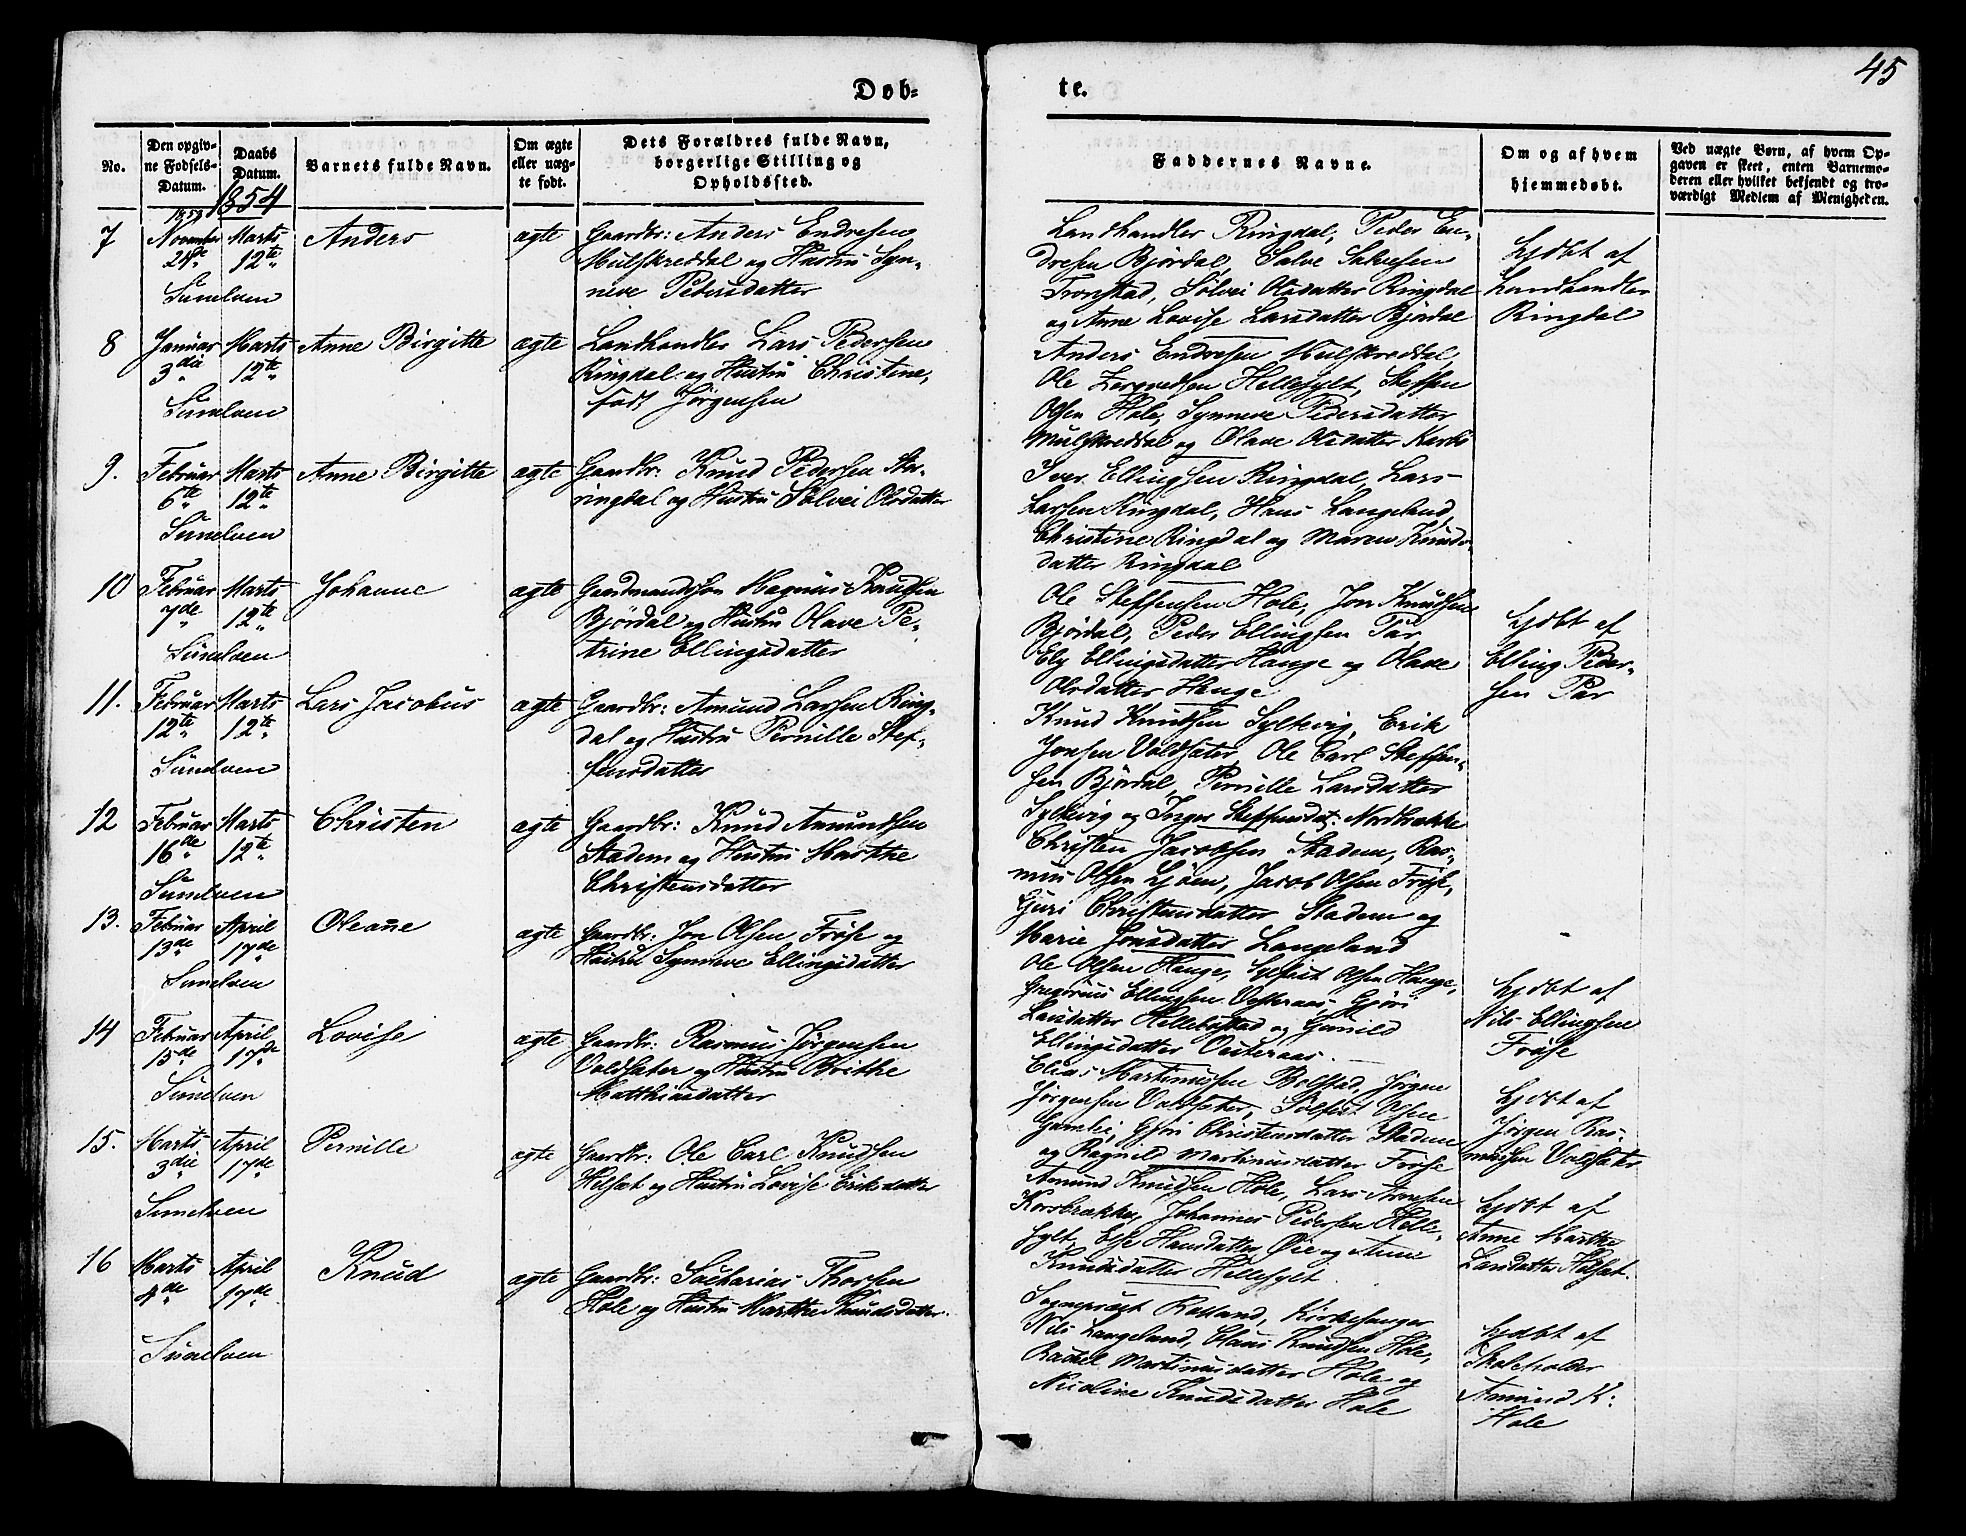 45
Døb-
te.
No.
Den opgiv-
ne Fødsels-
Datum.
Daabs
Datum.
1854
Barnets fulde Navn.
Om ægte
eller uæg-
te født.
Dets Forældres fulde Navn,
borgerlige Stilling og
Opholdssted.
Faddernes Navne.
Om og af hvem
hjemmedøbt.
Ved uægte Børn, af hvem Op-
gaven er skeet, enten Barnemo-
deren eller hvilket bekjendt og tro-
værdigt Medlem af Menigheden.
7
1853
November
Marts
12te
Sunelven
Anders
ægte
Gaardbr: Anders Endresen
Mulskreddal og Hustru Syn-
neve Pedersdatter
Landhandler Ringdal, Peder En-
dresen Bjørdal, Salve Salvesen
Tronstad, Sølvei Olsdatter Ringdal
og Anne Lovise Larsdatter Bjørdal
Hjdbt af
Landhandler
Ringdal
8
Januar
3die
Marts
12te
Sunelven
Anne Birgitte
ægte
Landhandler Lars Pedersen
Ringdal og Hustru Christine,
født Jørgensen
Anders Endresen Mulskreddal,
Ole Hellesylt, Steffen
Olsen Hole, Synneve Pedersdatter
Mulskreddal og Olave Olsdatter
9.
Februar
6te
Marts
12te
Sunelven
Anne Birgitte
ægte
Gaardbr: Knud Pedersen Stor-
ringdal og Hustru Sølvei Olsdatter
Iver Ellingsen Ringdal, Lars
Larsen Ringdal, Hans Langeland,
Christine Ringdal og Maren Knuds-
datter Ringdal
10
Februar
7de
Marts
12te
Sunelven
Johanne
ægte
Gaardmandssøn Magnus Knudsen
Bjørdal og Hustru Olave Pe-
trine Ellingsdatter
Ole Steffensen Hole, Jon Knudsen
Bjørdal, Peder Ellingsen Tar,
Ely Ellingsdatter Hauge og Olave
Olsdatter Hauge
Hjdbt af
Elling Peder-
sen Tar
11.
Februar
12te
Marts
12te
Sunelven
Lars Jacobus
ægte
Gaardbr: Amund Larsen Ring-
dal og Hustru Pernille Stef-
fensdatter
Knud Knudsen Sylkvig, Erik
Jonsen Voldsæter, Ole Carl Steffen-
sen Bjørdal, Pernille Larsdatter
Sylkvig og Inger Steffensdt: Nordbrække
12
Februar
16de
Marts
12te
Sunelven
Christen
ægte
Gaardbr: Knud Amundsen
Stadem og Hustru Marthe
Christensdatter
Christen Jacobsen Stadem, Ras-
mus Olsen Ljøen, Jacob Olsen Frøse,
Guri Christensdatter Stadem og
Marie Jonsdatter Langeland
13.
Februar
13de
April
17de
Sunelven
Oleane
ægte
Gaardbr: Jon Olsen Frøse og
Hustru Synneve Ellingsdatter
Ole Olsen Hauge, Sylfest Olsen Hauge,
Gregorius Ellingsen Vesteraas, Gjøri
Larsdatter Hellebostad og Gunild
Ellingsdatter Vesteraas.
Hjdbt af
Nils Ellingsen
Frøse
14
Februar
15de
April
17de
Sunelven
Lovise
ægte
Gaardbr: Rasmus Jørgensen
Voldsæter og Hustru Brithe
Matthiasdatter
Elias Martinussen Bolstad, Jørgen
Jørgensen Voldsæter, Olsen
Christensdatter Stadem
og Ragnild Martinusdatter Frøse
Hjdbt af
Jørgen Ras-
mussen Voldsæter
15.
Marts
3die
April
17de
Sunelven
Pernille
ægte
Gaardbr: Ole Carl Knudsen
Helsæt og Hustru Lovise Eriksdatter
Amund Knudsen Hole, Lars Arnesen
Korsbrække, Johannes Pedersen Helle-
sylt, Else Hansdatter Øie og Anne
Knudsdatter Hellesylt.
Hjdbt af
Anne Marthe
Larsdatter Helsæt.
16
Marts
4de
April
17de
Sunelven
Knud
ægte
Gaardbr: Sacharias Thorsen
Hole og Hustru Marthe Knudsdatter.
Sognepræst Kirkesanger
Nils Langeland, Claus Knudsen Hole,
Rachel Martinusdatter Hole og
Nicoline Knudsdatter Hole
Hjdbt af
Skoleholder
Amund K:
Hole